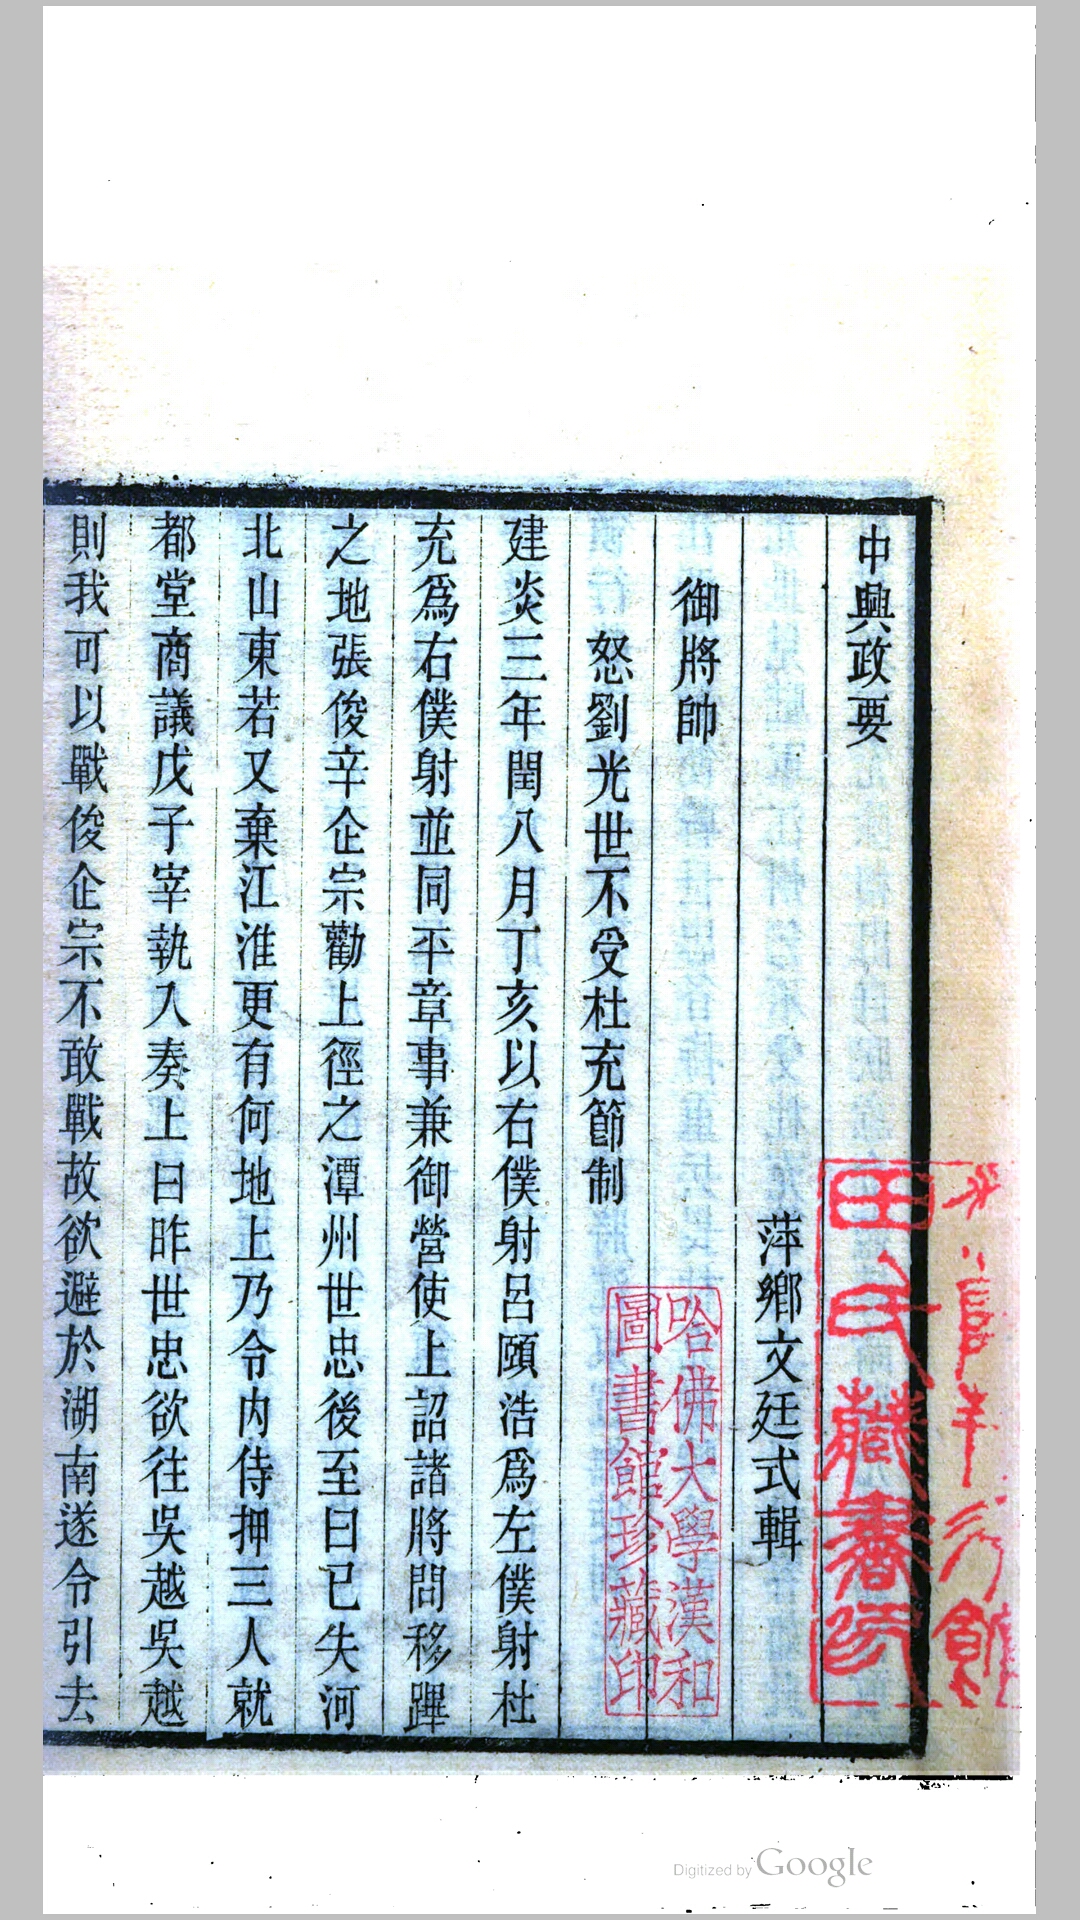 中興政要
萍鄉文廷式輯
御將帥
怒劉光世不受杜充節制
建炎三年閏八月丁亥以右僕射呂頤浩爲左僕射杜
充爲右僕射並同平章事兼御營使上詔諸將問移蹕
之地張俊辛企宗勸上徑之潭州世忠後至曰已失河
北山東若又棄江淮更有何地上乃令內侍押三人就
都堂商議戊子宰執入奏上曰昨世忠欲往吳越吳越
則我可以戰俊企宗不敢戰故欲避於湖南遂令引去
田氏藏書
哈佛大學漢和
圖書館珍藏印
Digitized by Google